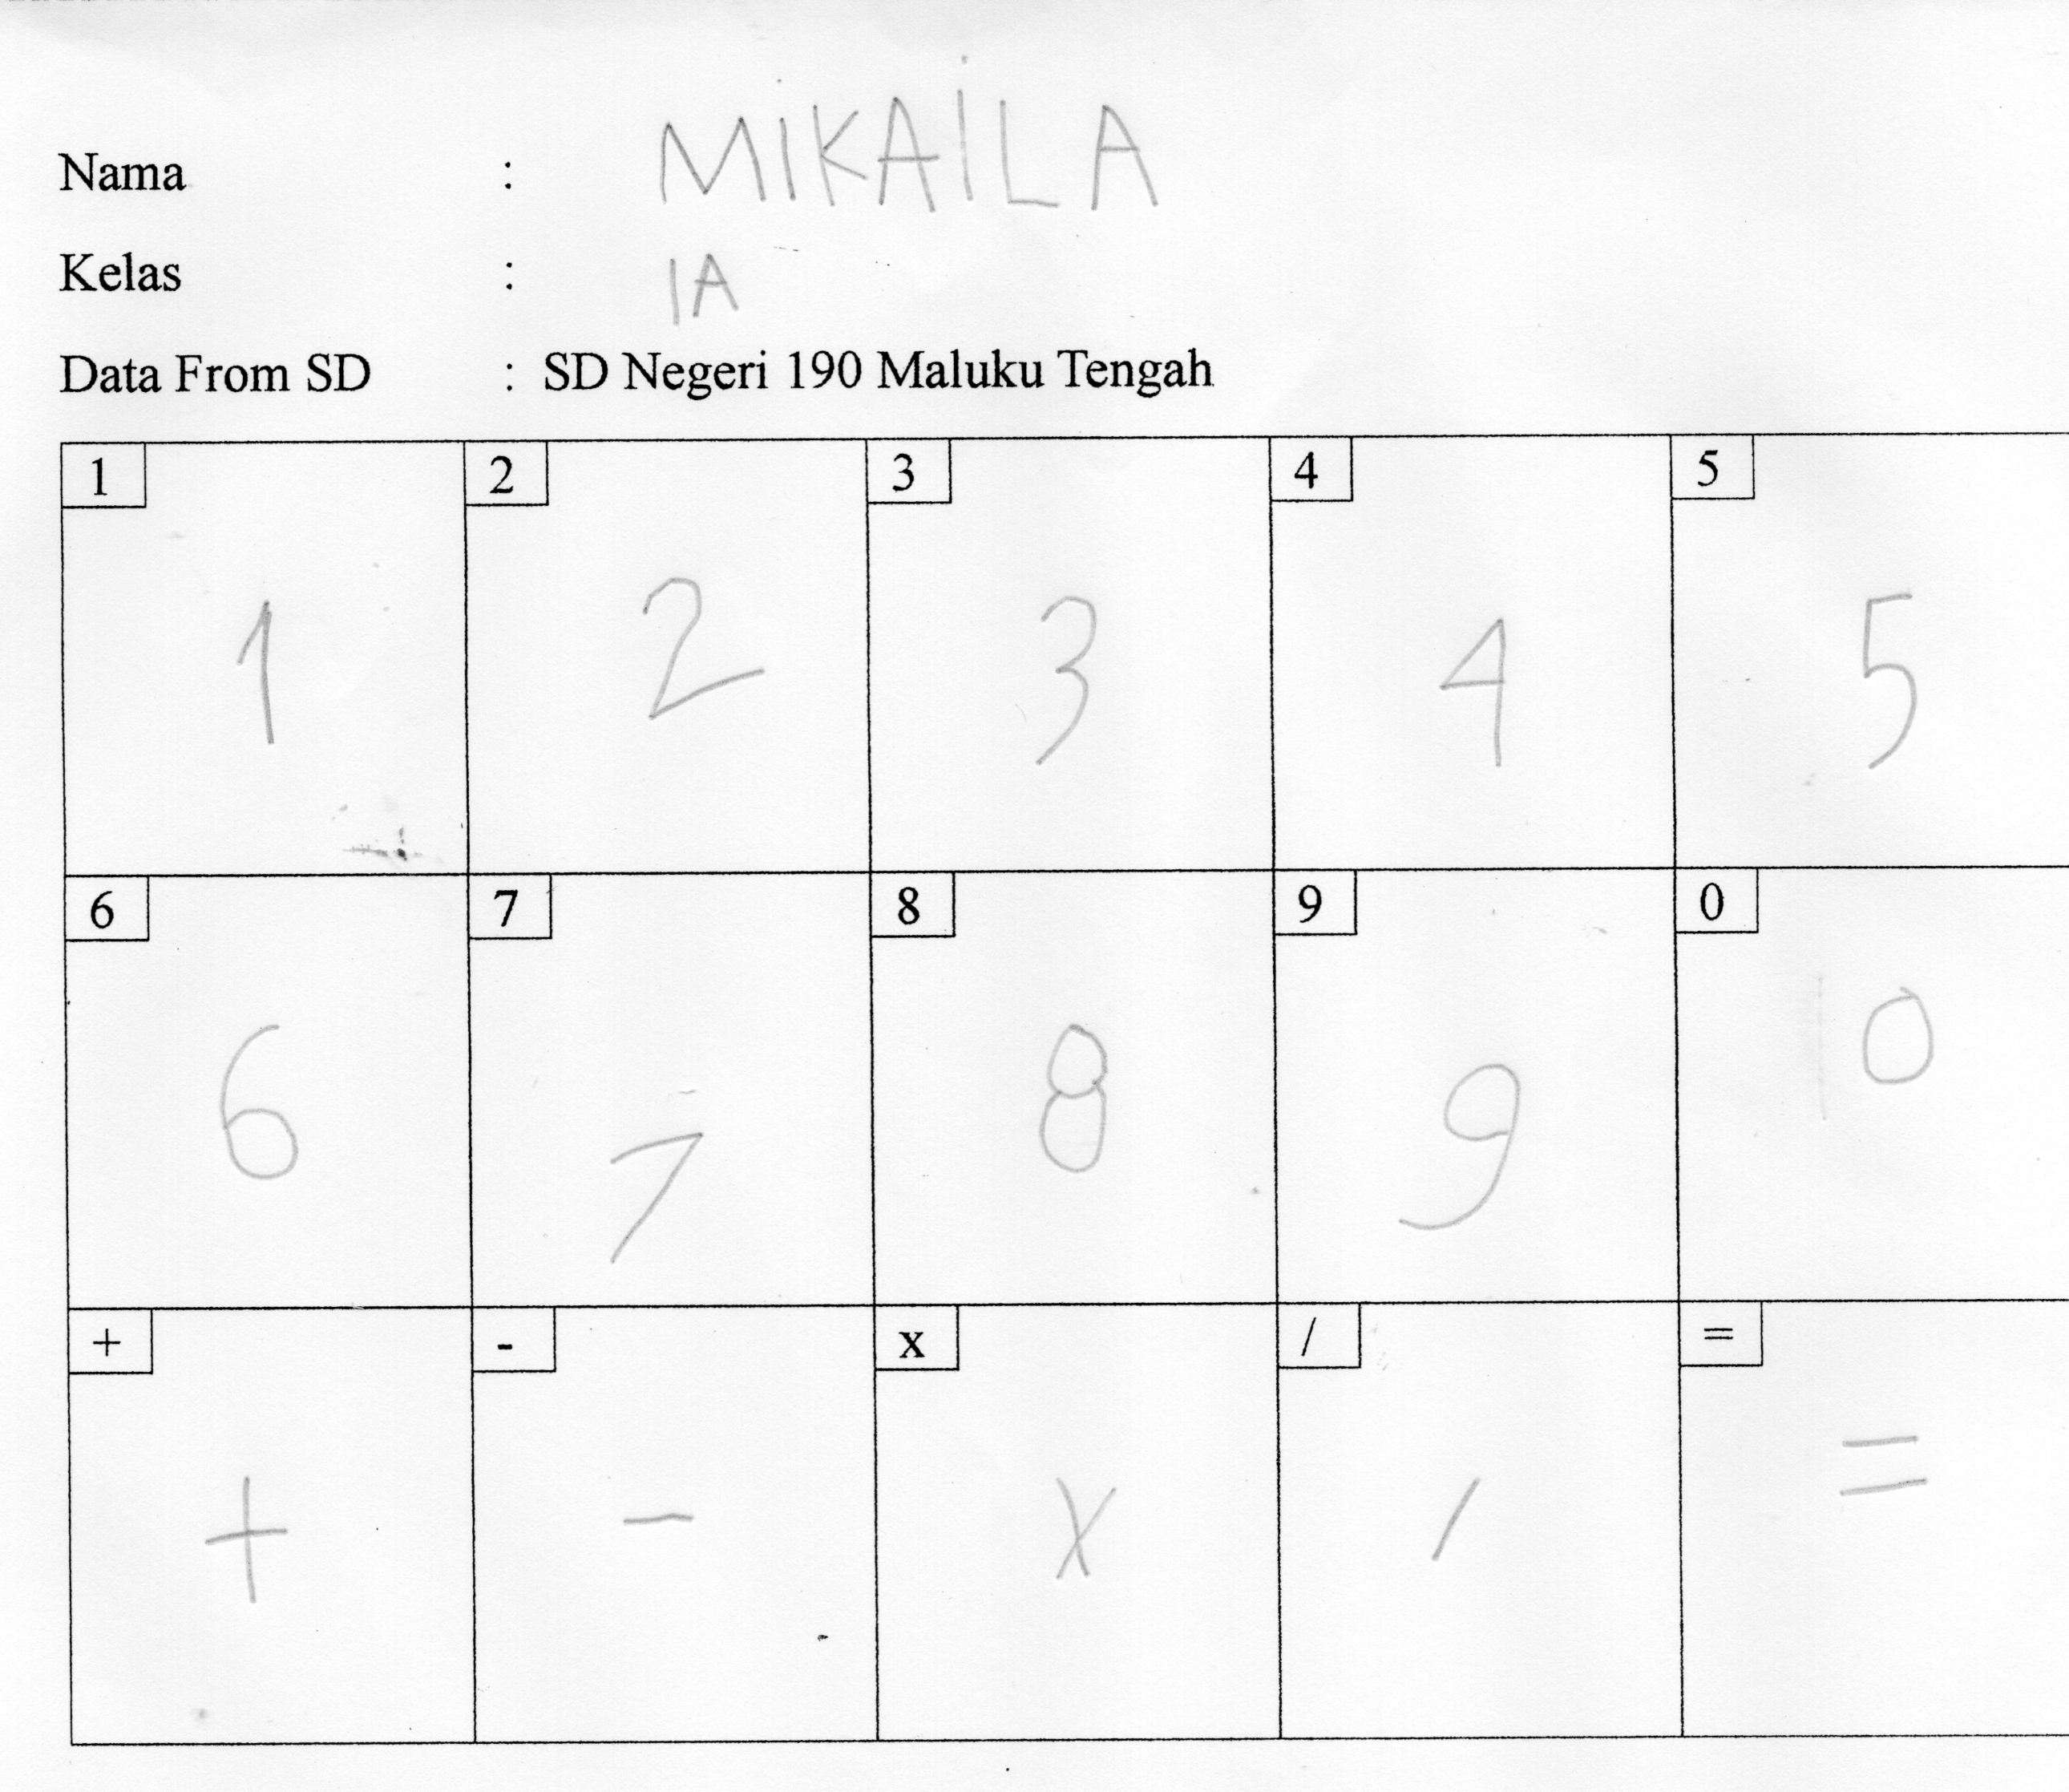 Nama : MiKAiLA
Kelas : 1A
Data From SD : SD Negeri 190 Maluku Tengah
1 2 3 4 5
1 2 3 4 5
6 7 8 9 0
6 7 8 9 0
+ - x / =
+ - x / =